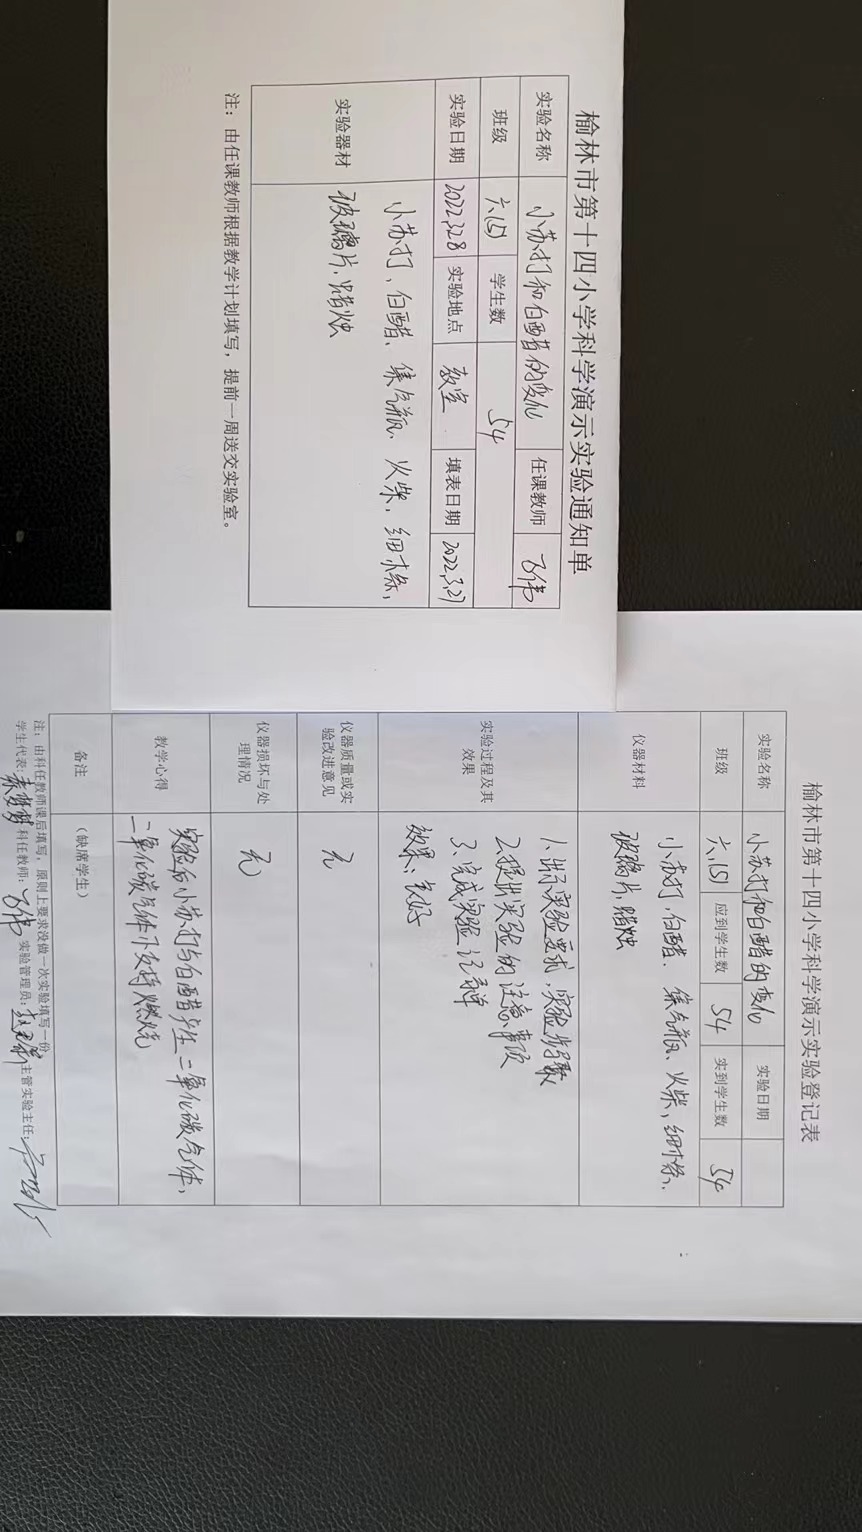 榆林市第十四小学科学演示实验通知单
实验名称 小苏打和白醋的变化 任课教师
班级 六(5) 学生数 54
实验日期 2022.3.28 实验地点 教室 填表日期 2022.3.27
实验器材 小苏打、白醋、集气瓶、火柴，细木条，
玻璃片、蜡烛
注：由任课教师根据教学计划填写，提前一周送交实验室。
榆林市第十四小学科学演示实验登记表
实验名称 小苏打和白醋的变化 实验日期
班级 六(5) 应到学生数 54 实到学生数 54
仪器材料 小苏打，白醋、集气瓶、火柴，细木条、
玻璃片，蜡烛
实验过程及其
效果
1、出示实验要求，实验步骤
2、提出实验的注意事项
3、完成实验记录单
效果：良好
仪器质量或实
验改进意见
无
仪器损坏与处
理情况
无
教学心得 实验后小苏打与白醋产生二氧化碳气体，
二氧化碳气体不支持燃烧
备注 （缺席学生）
注：由科任教师课后填写，原则上要求没做一次实验填写一份
学生代表： 科任教师： 实验管理员： 主管实验主任：